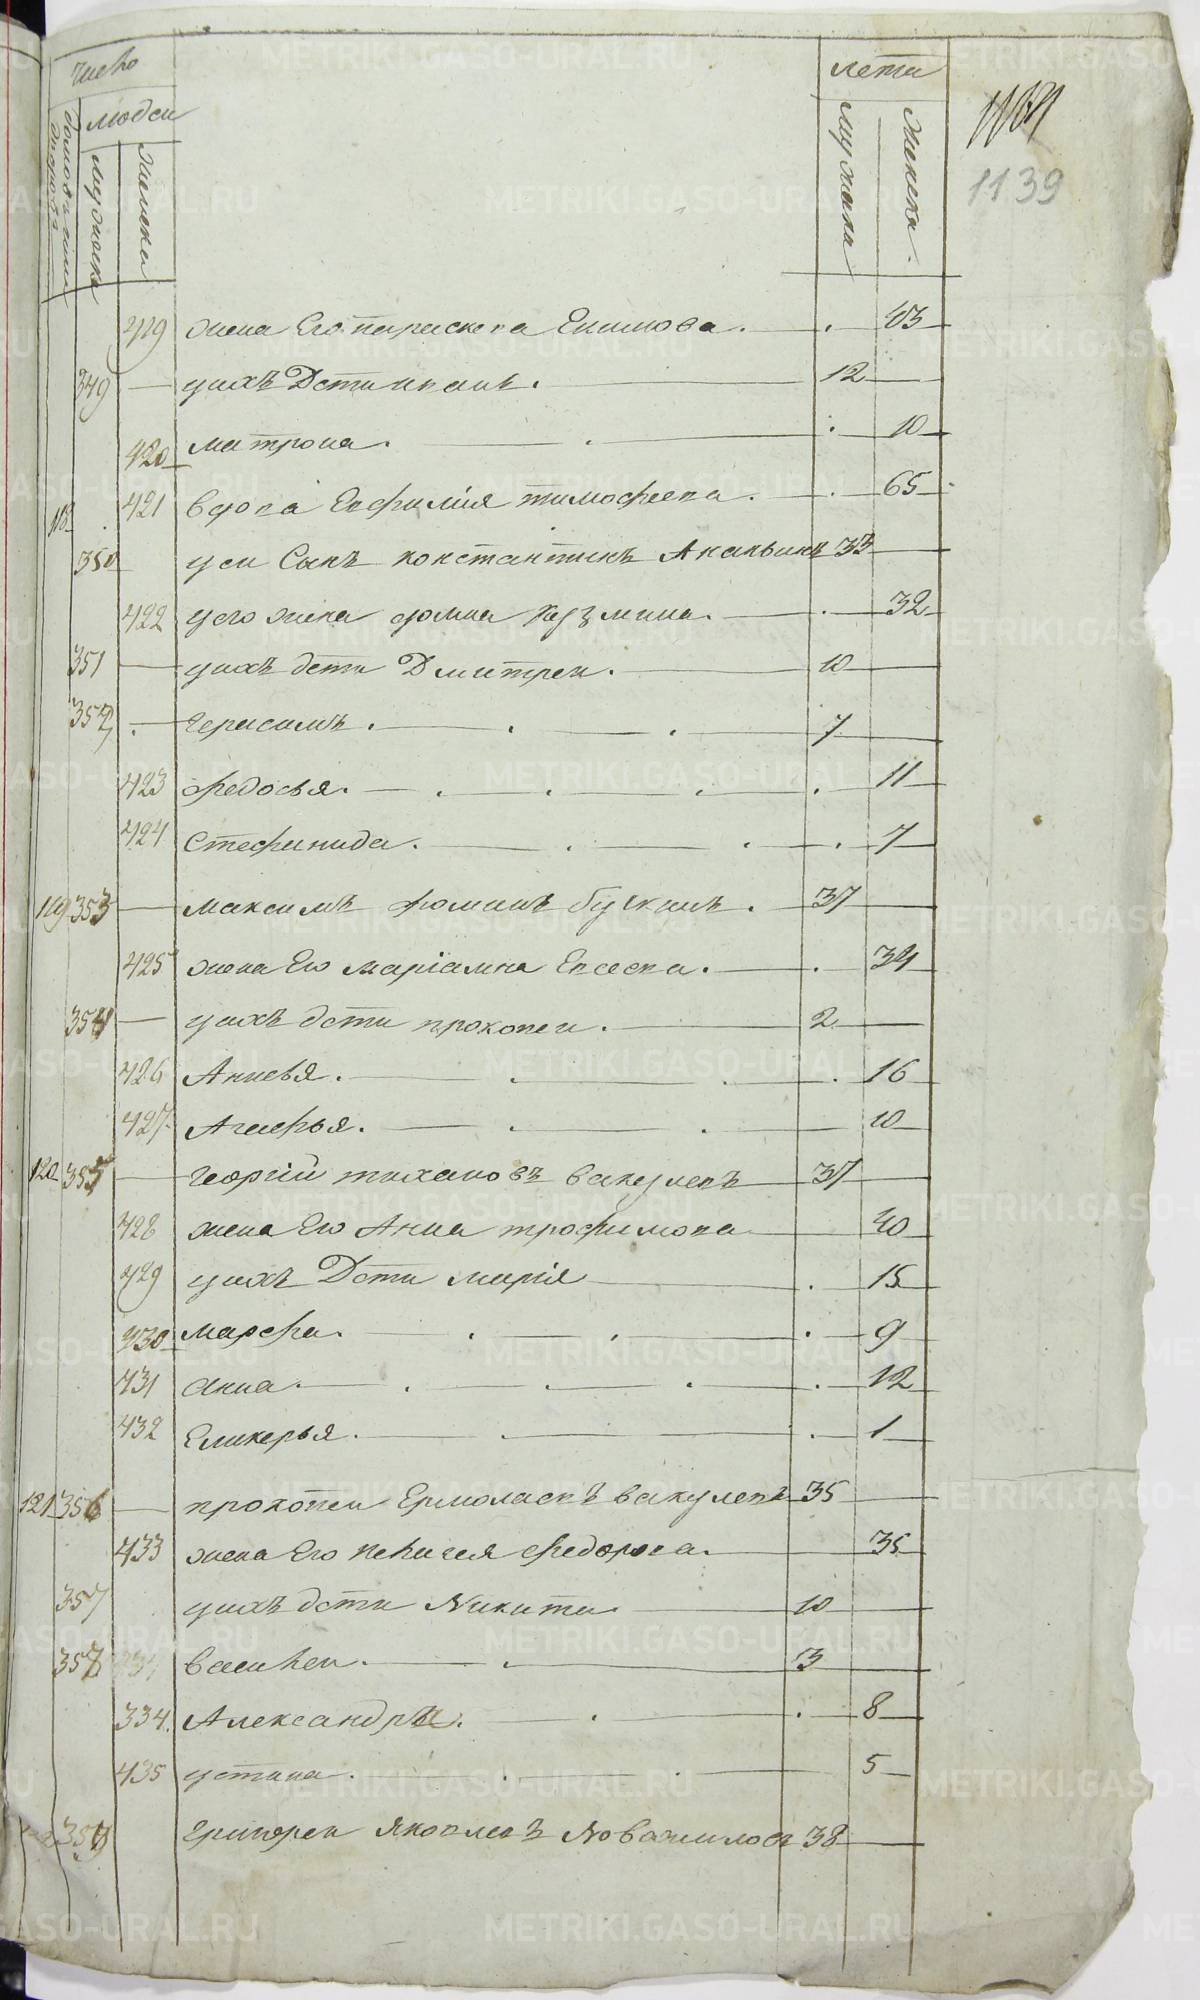 число лета
людеи
домовъ
мужска женска мужска женска
1139
419 жена Его парасковa Екимова. 43
349 уихъ Дети иванъ. 12
420 матрона. 10
118 421 вдова Евфимия тимофеева. 65
350 уеи Сынъ константинъ Ананьинъ 33
422 уего жена домна кузмина. 32
351 уихъ дети Дмитреи. 10
352 герасимъ. 7
423 федосья. 11
424 Стефанида. 7
119 353 максимъ фоминъ 37
425 жена Его мариамна Евсеева. 34
354 уихъ дети прокопеи. 2
426 Анисья. 16
427 Агафья. 10
120 355 георгий тихановъ вакулевъ 37
428 жена Его Анна трофимова 40
429 уихъ Дети мария 15
430 марфа. 9
431 анна. 12
432 Гликерья. 1
121 356 прокопеи Ермолаевъ вакулевъ 35
433 жена Его федорова. 35
357 уихъ дети Никита 10
358 василеи. 3
334. Александра. 8
435 устина. 5
359 Григореи Яковлевъ Новожиловъ 38
METRIKI.GASO-URAL.RU